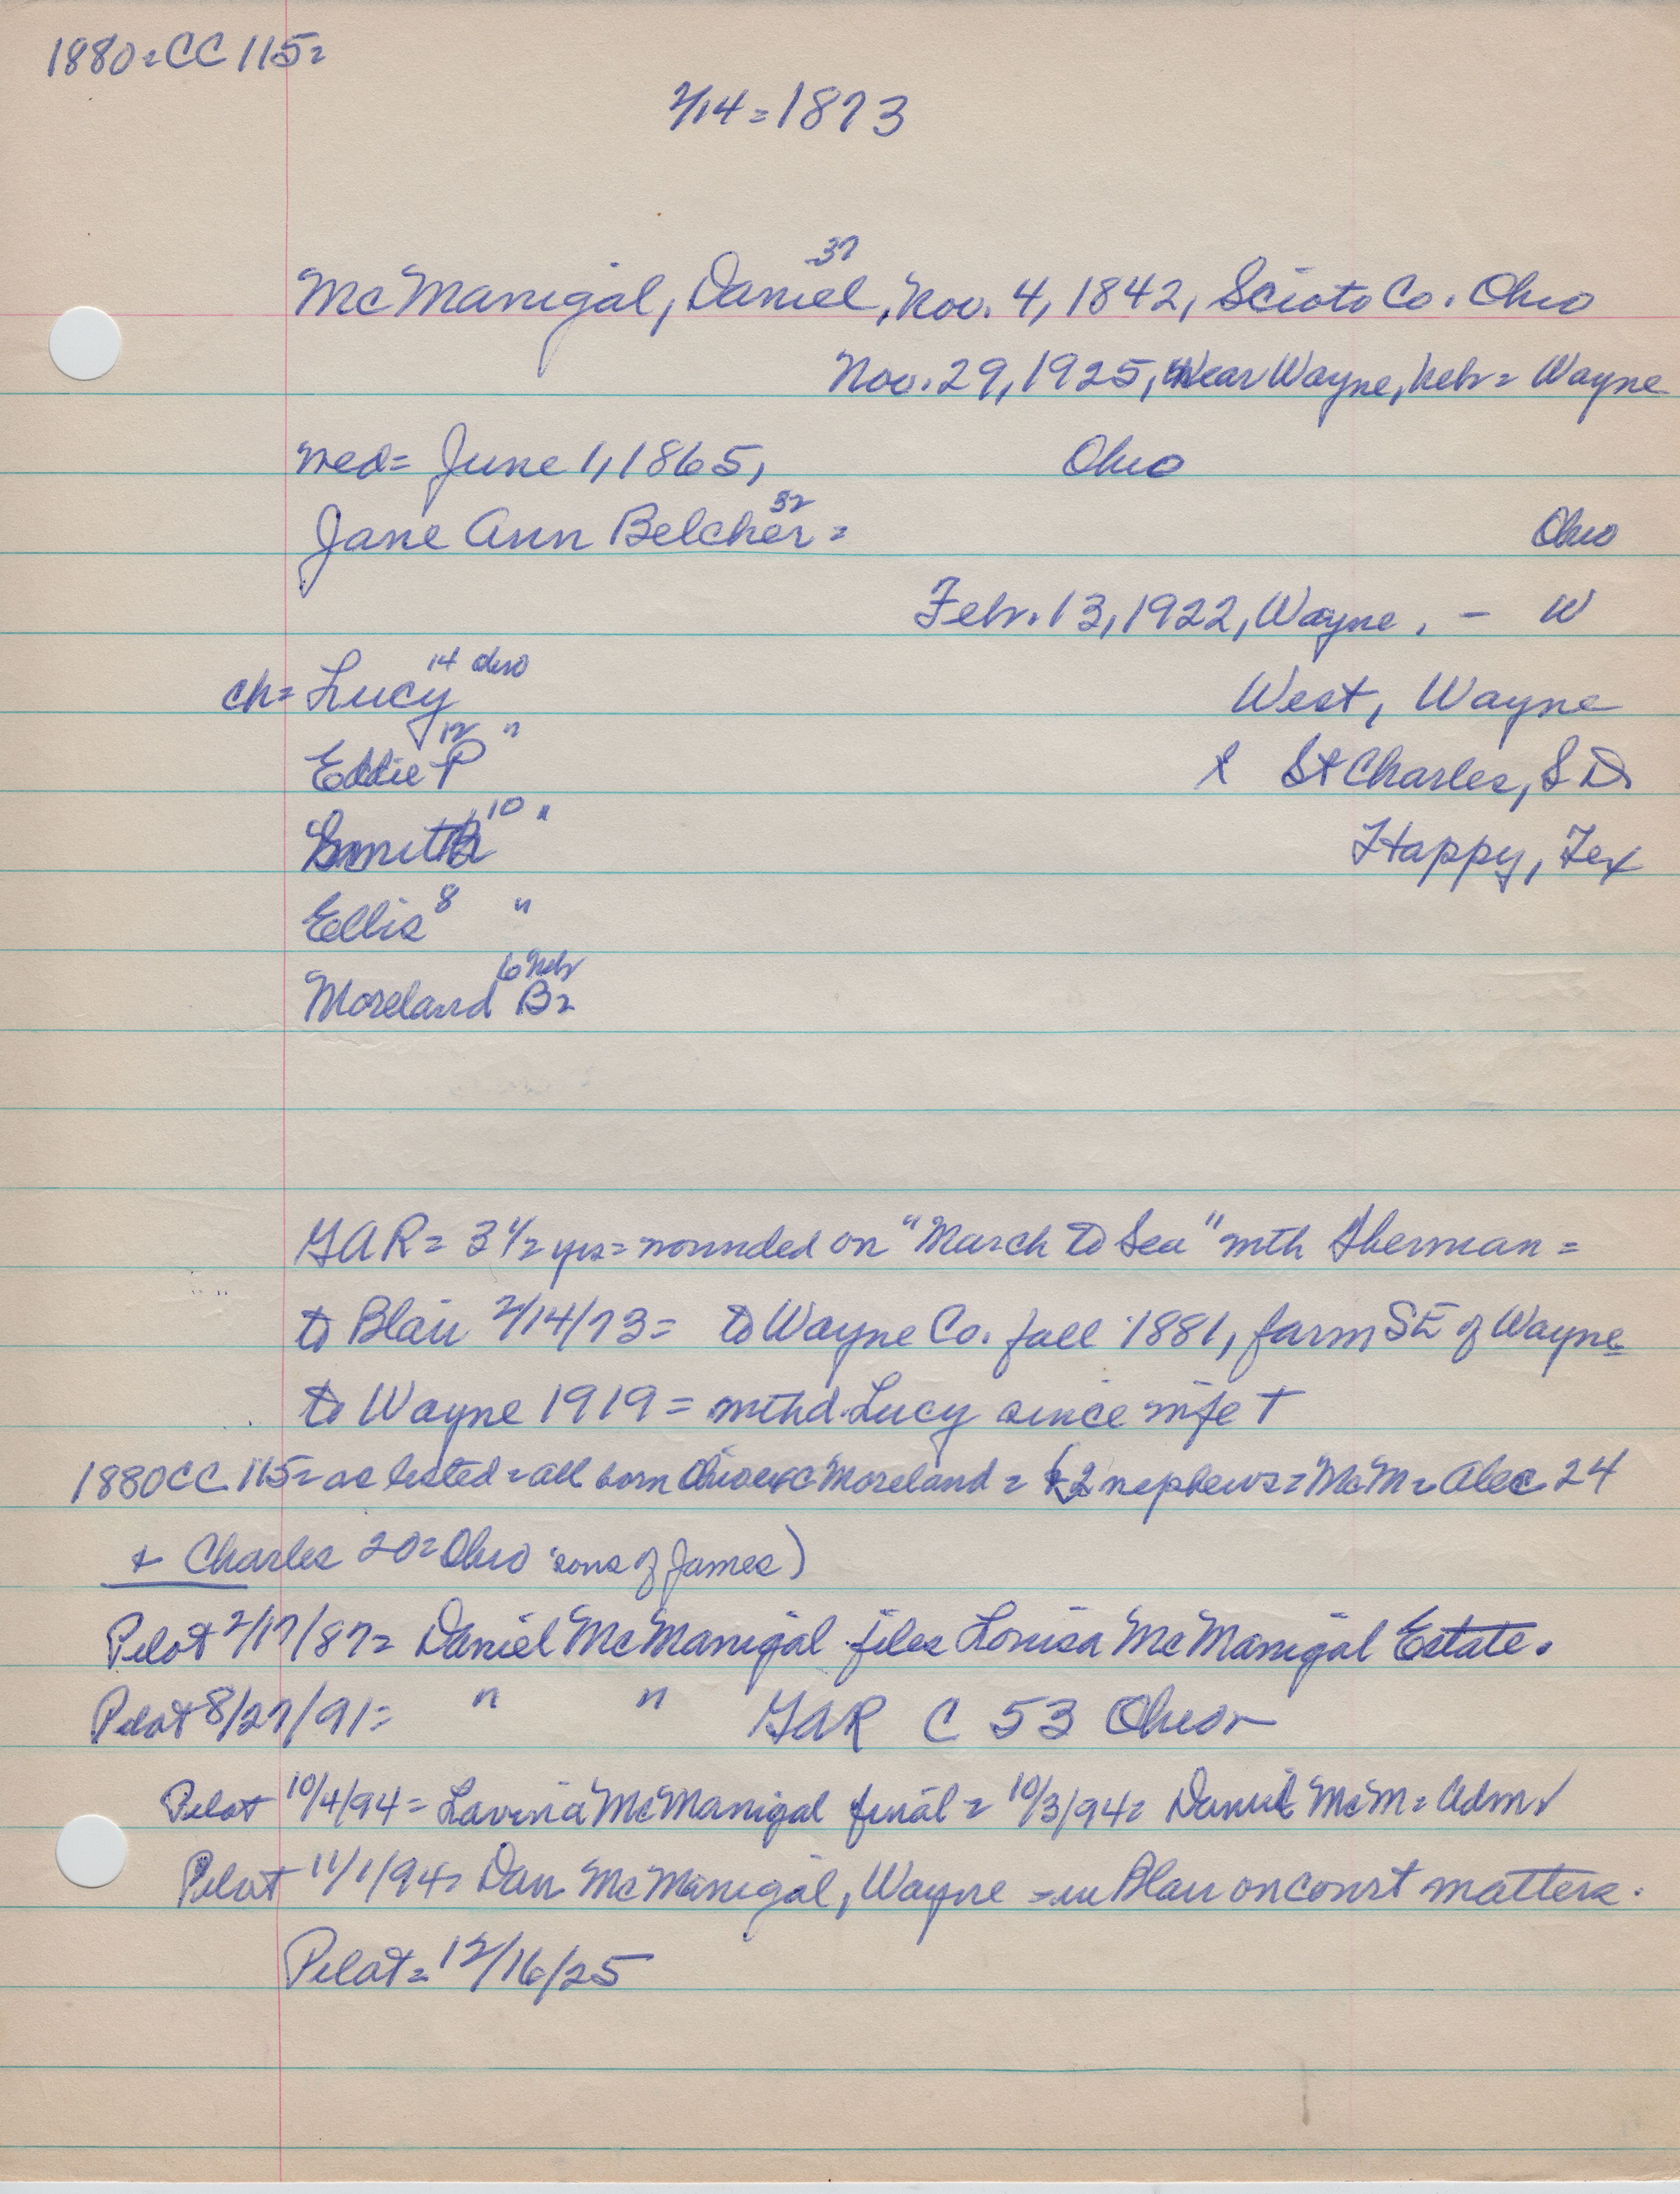 1880=CC 115=
2/14=1873
37
McManigal, Daniel, Nov. 4, 1842, Scioto Co. Ohio
Nov. 29, 1925, Near Wayne, Nebr= Wayne
med= June 1, 1865, Ohio
32
Jane Ann Belcher= Ohio
Febr. 13, 1922, Wayne, - W
14 Ohio
ch= Lucy West, Wayne
12 "
Eddie P & St Charles, S D
10 "
Smith Happy, Tex
8 "
Ellis
6 Nebr
Moreland B=
GAR= 3 1/2 yrs= wounded on "March to Sea" with Sherman=
to Blair 2/14/73= to Wayne Co. fall 1881, farm SE of Wayne
to Wayne 1919= with d. Lucy since wife †
1880 CC 115= as listed= all born Ohio exc Moreland= (2 nephews= McM= Alec 24
& Charles 20= Ohio sons of James)
Pilot 2/17/87= Daniel McManigal files Louisa McManigal Estate.
Pilot 8/27/91= " " GAR C 53 Ohio
Pilot 10/4/94= Lavina McManigal final= 10/3/94= Daniel McM= Admr
Pilot 11/1/94= Dan McManigal, Wayne =in Blair on court matters.
Pilot= 12/16/25